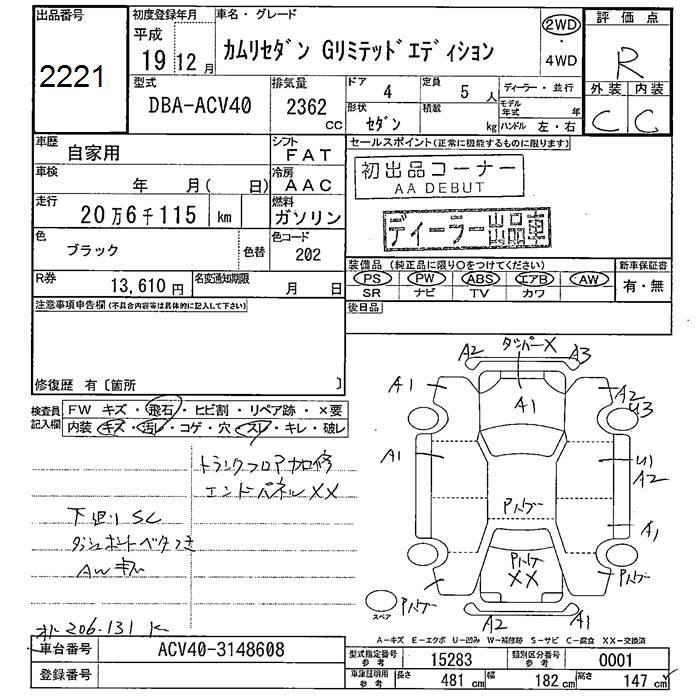 出品番号
2221
初度登録年月
平成
19年12月
車名・グレード
カムリセダン Gリミテッドエディション
2WD
・
4WD
評価点
R
外装 内装
C C
型式
DBA-ACV40
排気量
2362
cc
ドア
4
定員
5人
形状
セダン
積載
kg
ディーラー・並行
モデル年式 年
ハンドル 左・右
車歴
自家用
シフト
FAT
車検
年 月( 日)
冷房
AAC
走行
20万6千115 km
燃料
ガソリン
色
ブラック
色替
色コード
202
R券
13,610円
名変通知期限
月 日
セールスポイント(正常に機能するものに限ります)
初出品コーナー
AA DEBUT
ディーラー出品車
装備品 (純正品に限り○をつけてください)
PS PW ABS エアB AW
SR ナビ TV カワ
新車保証書
有・無
後日品
注意事項申告欄(不具合内容等は具体的に記入して下さい)
修復歴 有〔箇所 〕
検査員記入欄
FW キズ・飛石・ヒビ割・リペア跡・×要
内装 キズ・汚レ・コゲ・穴・スレ・キレ・破レ
トランクフロア加修
エンドパネルXX
下廻りSC
ダッシュボードベタつき
AWキズ
オル206.131K
ダンパーX
A2 A3
A1 A1 A2
U3
A1 U1
A2
Pバグー
A1
Pバグー
XX
Pバグー Pバグー
スペア
A2 A1
A-キズ E-エクボ U-凹み W-補修跡 S-サビ C-腐食 XX-交換済
車台番号
ACV40-3148608
登録番号
型式指定番号 参考
15283
類別区分番号 参考
0001
車庫証明用 参考
長さ 481cm
幅 182cm
高さ 147cm